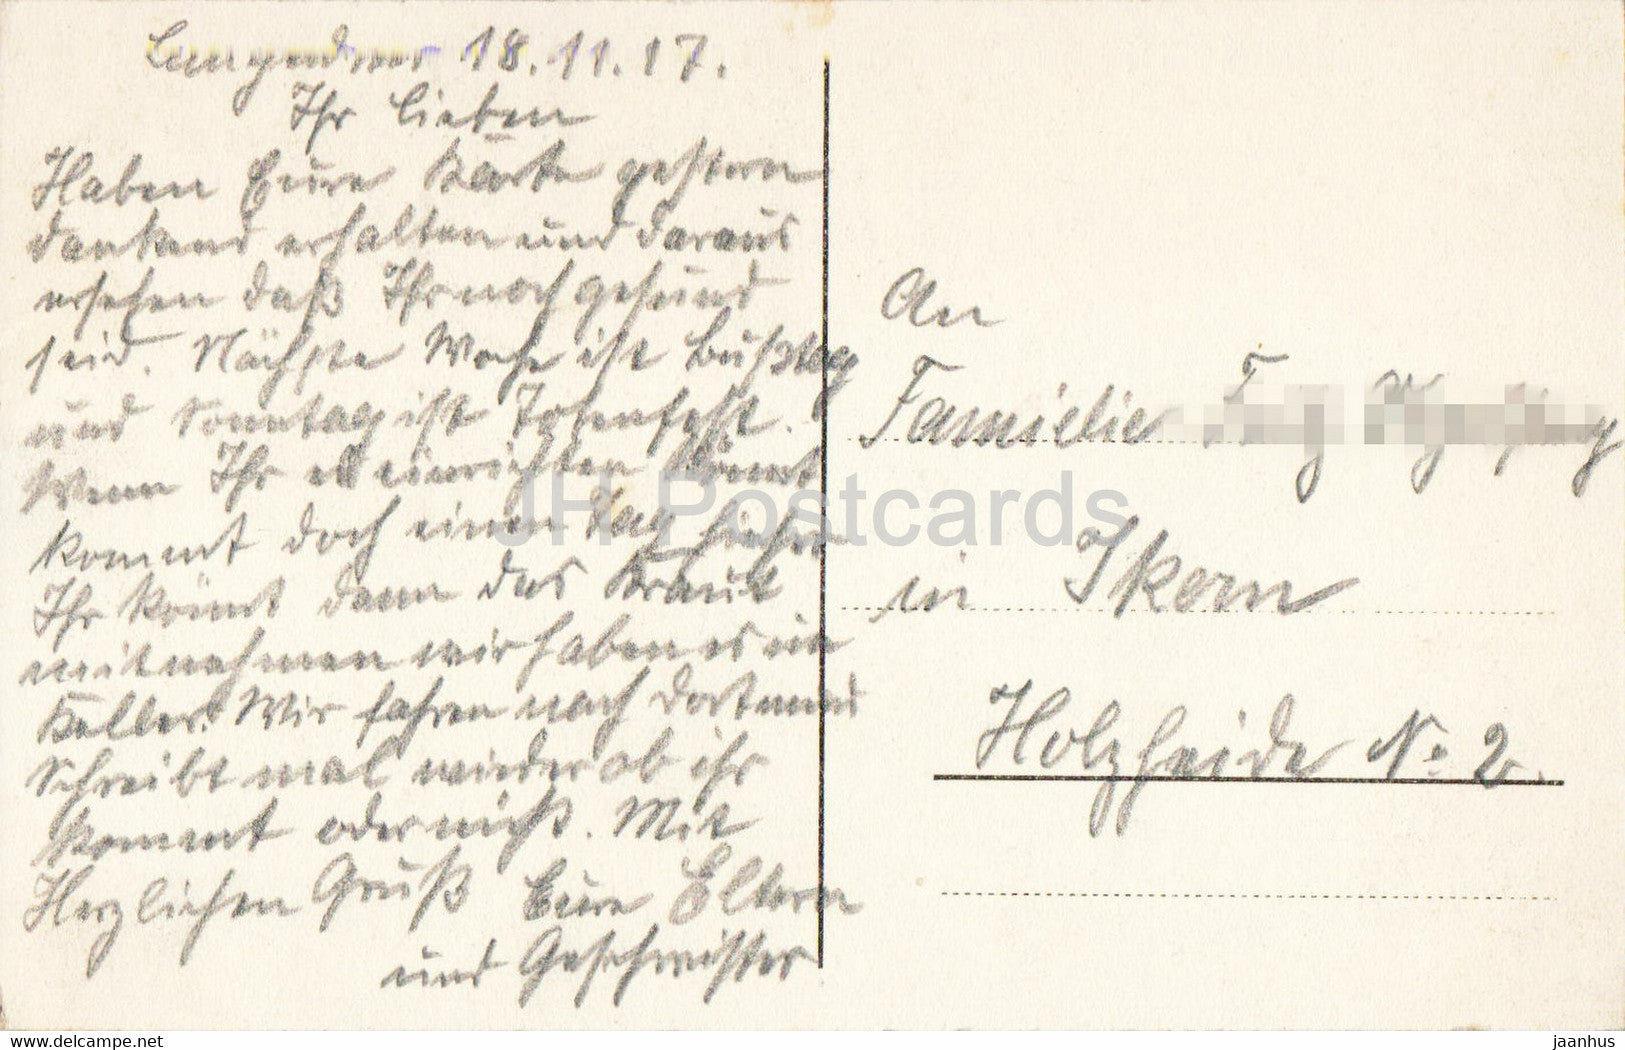 Langendreer 18.11.17.
Ihr Lieben
Haben Eure Karte gestern
dankend erhalten und daraus
ersehen daß Ihr noch gesund
seid. Nächste Woche ist Bußtag
und Sonntag ist Totenfest.
Wenn Ihr es einrichten könnt
kommt doch einen Tag hieher
Ihr könnt dann das Kraut
mitnehmen wir haben es im
Keller. Wir fahren nach Dortmund
Schreibt mal wieder ob ihr
kommt oder nicht. Mit
Herzlichen Gruß Eure Eltern
und Geschwister
An
Familie
in Ikern
Holzheide No 2.
JH Postcards
www.delcampe.net
jaanhus